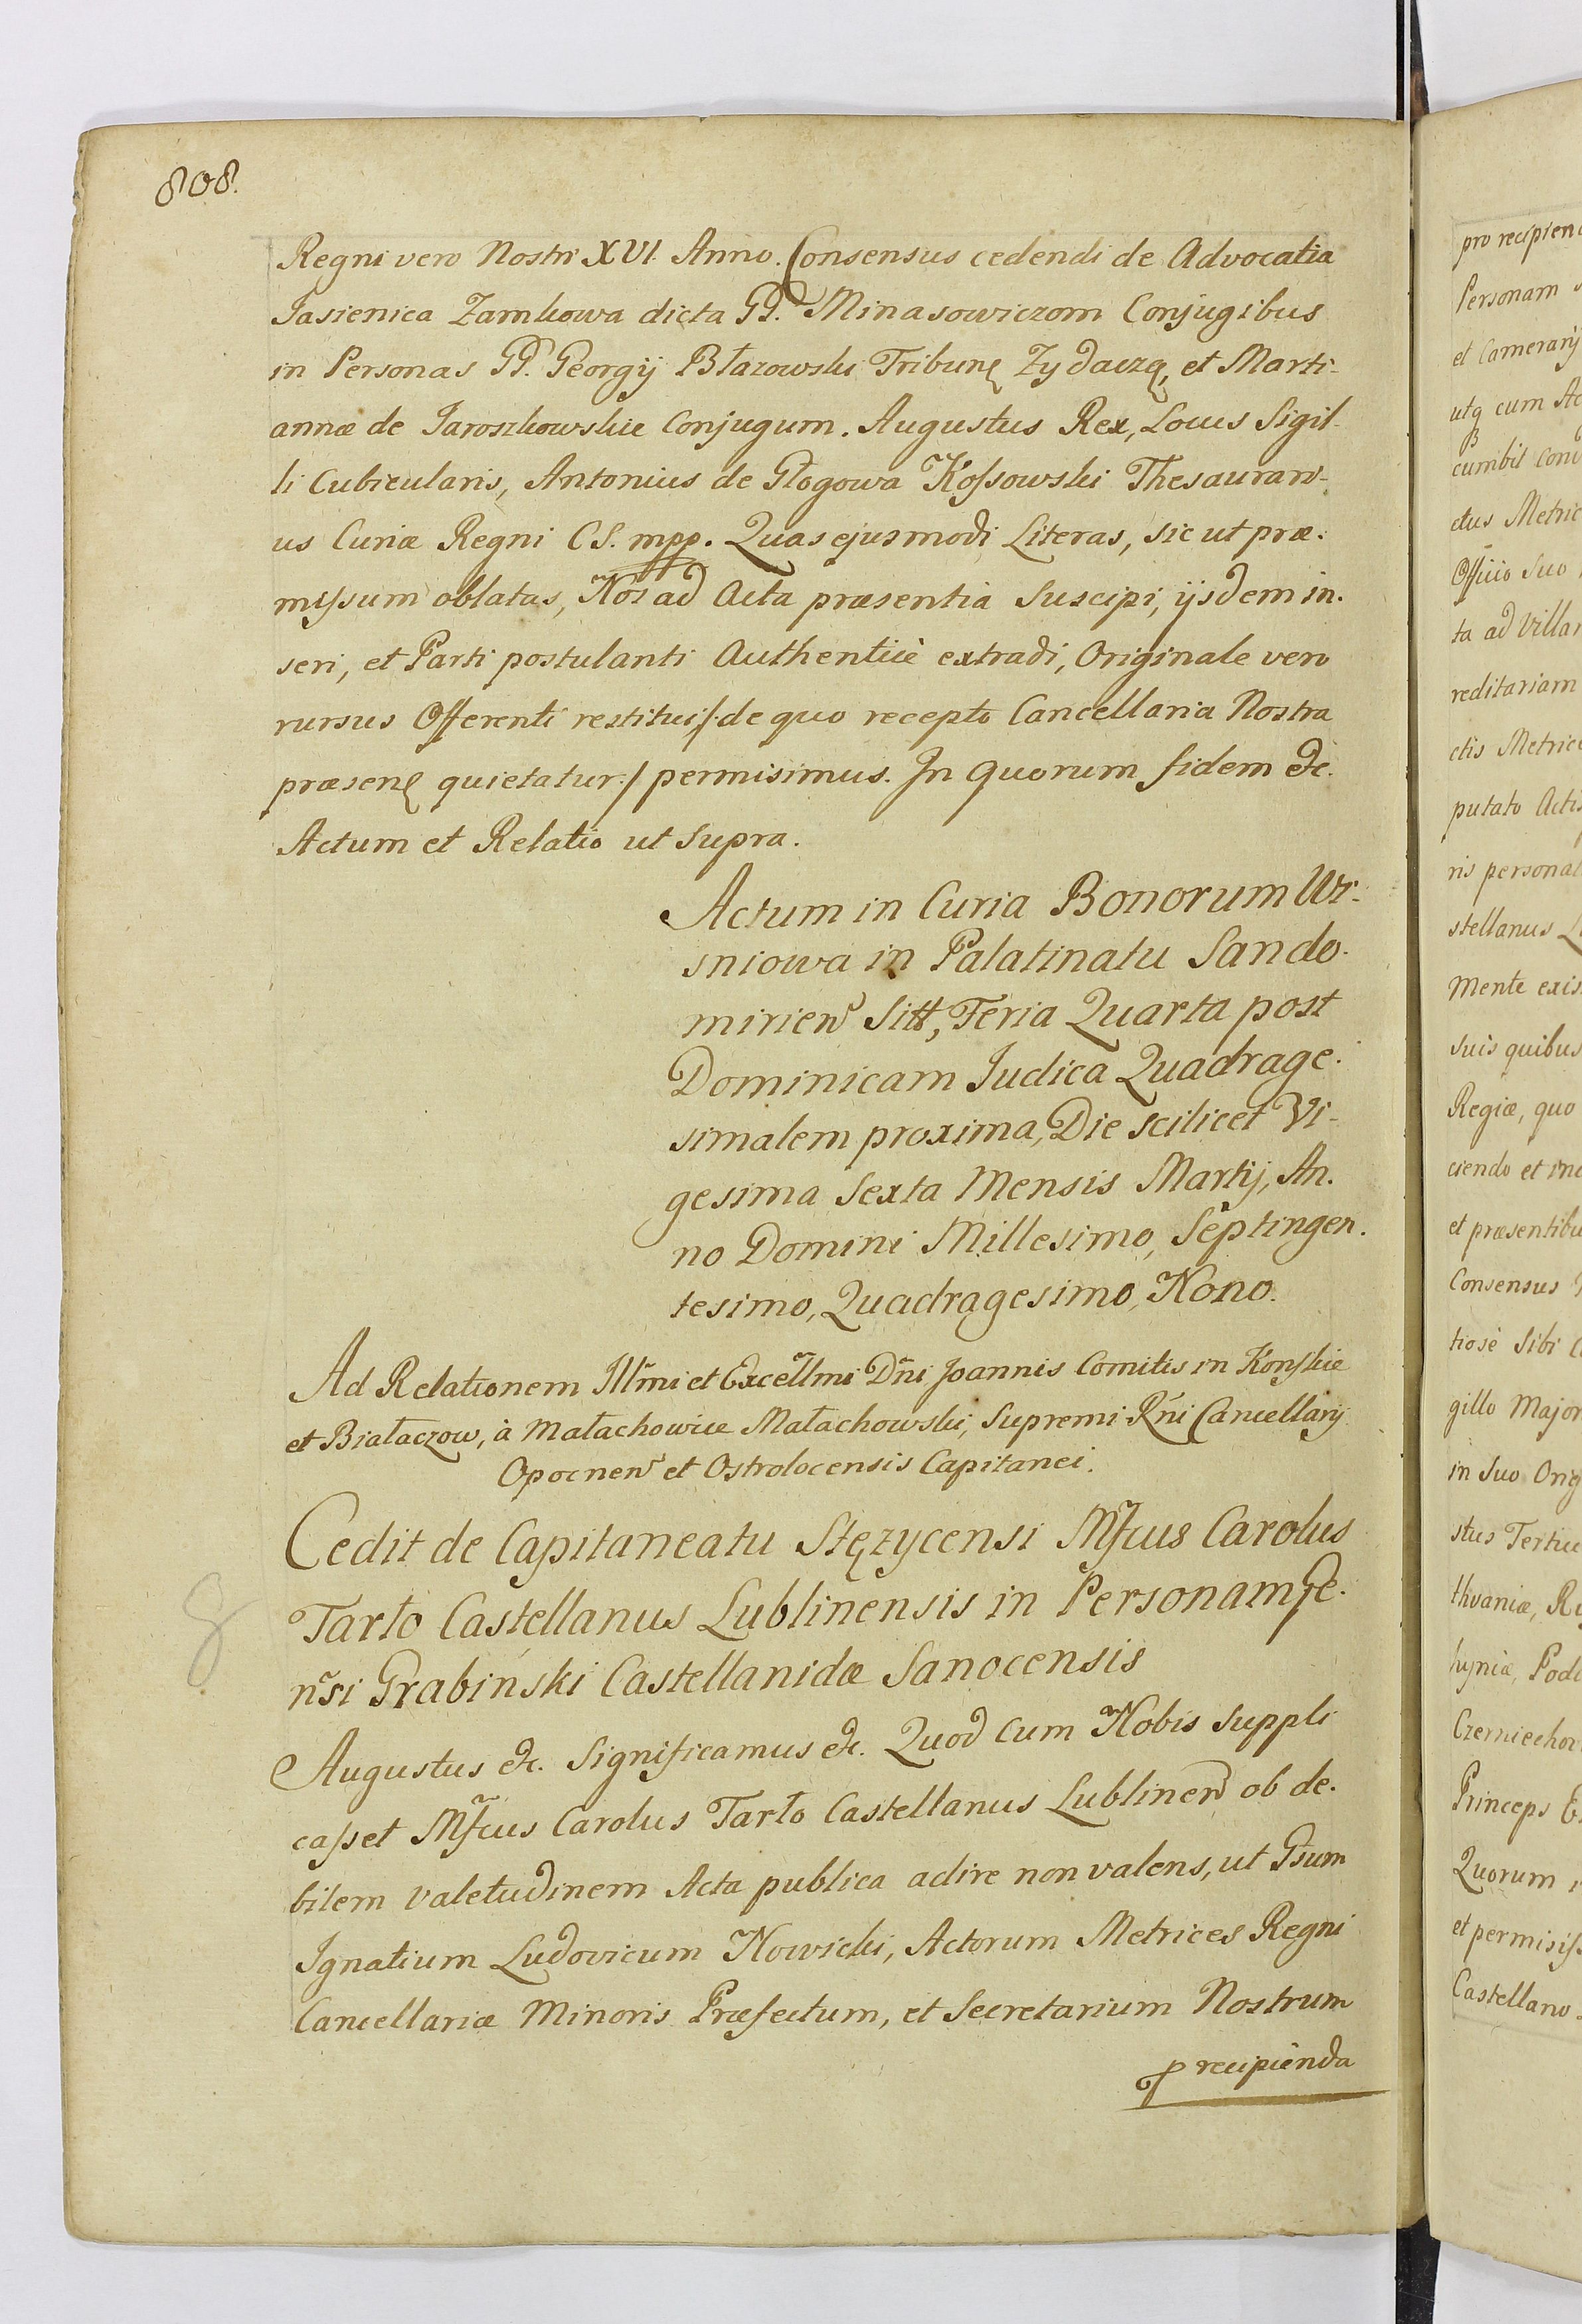 808.
Regni vero Nostri XVI. Anno. Consensus cedendi de Advocatia
Jasienica Zamkowa dicta GD. Minasowiczom Conjugibus
in Personas GD. Georgij Błazowski Tribunę Zydaczę, et Marti-
annæ de Jaroszkowskie Conjugum. Augustus Rex, Locus Sigil-
li Cubicularis, Antonius de Głogowa Kossowski Thesaurari-
us Curiæ Regni C S. mpp. Quas ejusmodi Literas, sic ut præ-
missum oblatas, Nos ad Acta præsentia suscipi, ijsdem in-
seri, et Parti postulanti Authenticè extradi, Originale vero
rursus Offerenti restitui /: de quo recepto Cancellaria Nostra
præsenę quietatur :/ permisimus. In quorum fidem &c.
Actum et Relatio ut Supra.
Actum in Curia Bonorum Wi-
sniowa in Palatinatu Sando-
mirien Sitt, Feria Quarta post
Dominicam Judica Quadrage-
simalem proxima, Die scilicet Vi-
gesima Sexta Mensis Martij, An-
no Domini Millesimo, Septingen-
tesimo, Quadragesimo, Nono.
Ad Relationem Illmi et Excellmi Dni Joannis Comitis in Konskie
et Białaczow, à Małachowice Małachowski, Supremi Rni Cancellarij
Opocnen et Ostrolocensis Capitanei.
Cedit de Capitaneatu Stęzycensi Mfcus Carolus
Tarło Castellanus Lublinensis in Personam Ge-
nrsi Grabinski Castellanidæ Sanocensis
8
Augustus &c. Significamus &c. Quod cum Nobis suppli
casset Mfcus Carolus Tarło Castellanus Lublinen ob de-
bilem valetudinem Acta publica adire non valens, ut Gsum
Ignatium Ludovicum Nowicki, Actorum Metrices Regni
Cancellariæ Minoris Præfectum, et Secretarium Nostrum
p recipienda
pro recipien
Personam
et Camerarij
utq cum Ac
cumbil
ctus Metric
Officio suo
ta ad Villa
reditariam
ctis Metric
putato Acti
ris personal
stellanus
mente exis
suis quibus
Regiæ, quo
ciendo et in
et præsentib
Consensus
tiosè Sibi
gillo Major
in suo Orig
stus Tertiu
thvaniæ, R
hyniæ, Pod
Czerniechov
Princeps E
Quorum
et permisis
Castellano